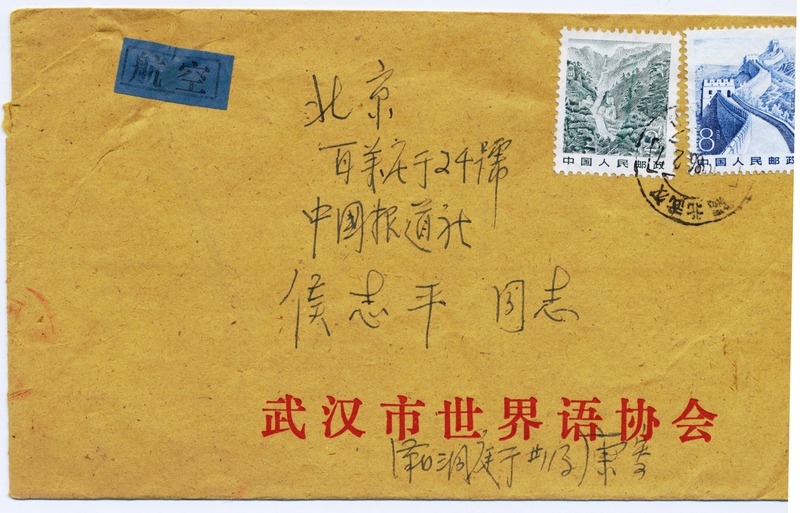 航空
中国人民邮政
8
中国人民邮政
北京
百萬庄亍24號
中國报道社
侯志平 同志
武汉市世界语协会
洞庭亍